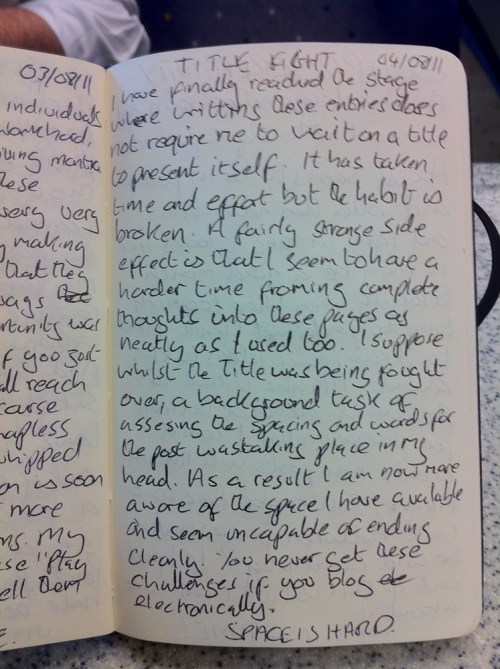 03/08/11
individuals
workload,
living mantra
these
very very
making
that they
ways
rtunity was
f you just
all reach
course
hapless
whipped
on is soon
more
ns. My
se "play
ell them
TITLE FIGHT 04/08/11
I have finally reached the stage
where writting these entries does
not require me to wait on a title
to present itself. It has taken
time and effort but the habit is
broken. A fairly strange side
effect is that I seem to have a
harder time froming complete
thoughts into these pages as
neatly as I used too. I suppose
whilst the Title was being fought
over, a background task of
assesing the spacing and words for
the post was taking place in my
head. As a result I am now more
aware of the space I have available
and seem uncapable of ending
cleanly. You never get these
challenges if you blog
electronically.
SPACE IS HARD.